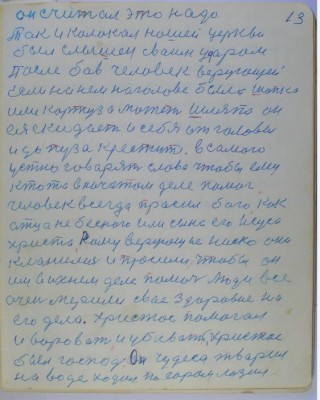 он считал это надо 13
Так и Колокол нашей церкви
был слышен своим ударом
после бав человек верующей
если на нем на голове была шапка
или картуз а может шляпа он
ея скидает и себя от головы
и до пуза крестит. в самого
устно говорят слова чтобы ему
кто то в начатом деле помог.
человек всегда просил бога как
отца небесного или сына его Исуса
христа Кому верующие ниско она
кланялися и просили, чтобы он
им в ихнем деле помог Люди все
очен мерили свае здаровие на
его дела. христос помогал
и воровать и убивать, христос
был господ Он чудеса тварил
на воде ходил по горам лазил.